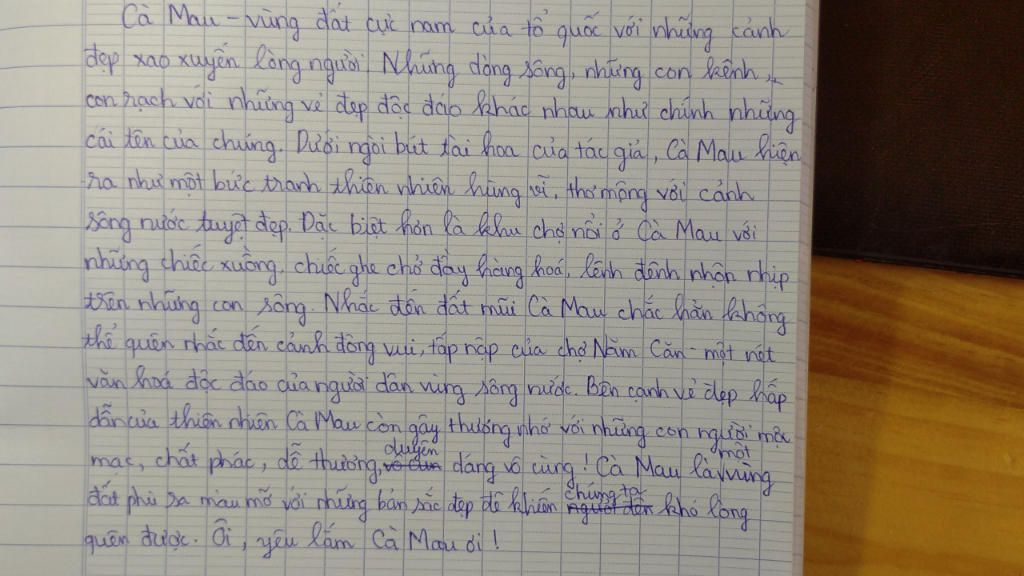 Cà Mau - vùng đất cực nam của tổ quốc với những cảnh
đẹp xao xuyến lòng người. Những dòng sông, những con kênh,
con rạch với những vẻ đẹp độc đáo khác nhau như chính những
cái tên của chúng. Dưới ngòi bút tài hoa của tác giả, Cà Mau hiện
ra như một bức tranh thiên nhiên hùng vĩ, thơ mộng với cảnh
sông nước tuyệt đẹp. Đặc biệt hơn là khu chợ nổi ở Cà Mau với
những chiếc xuồng, chiếc ghe chở đầy hàng hoá, lênh đênh nhộn nhịp
trên những con sông. Nhắc đến đất mũi Cà Mau chắc hẳn không
thể quên nhắc đến cảnh đông vui, tấp nập của chợ Năm Căn - một nét
văn hoá độc đáo của người dân vùng sông nước. Bên cạnh vẻ đẹp hấp
dẫn của thiên nhiên Cà Mau còn gây thương nhớ với những con người mộc
mạc, chất phác, dễ thương, duyên dáng vô cùng! Cà Mau là một vùng
đất phù sa màu mỡ với những bản sắc đẹp đẽ khiến chúng ta khó lòng
quên được. Ôi, yêu lắm Cà Mau ơi!